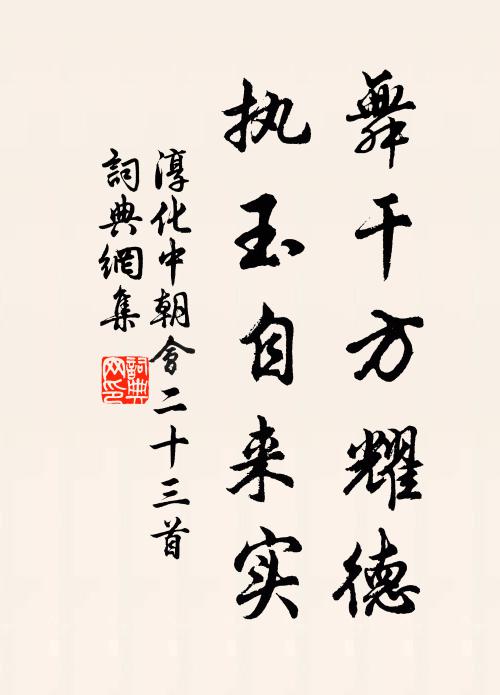 舞干方耀德
执玉自来实
淳化中朝会二十三首
词典網集
詞典
网印